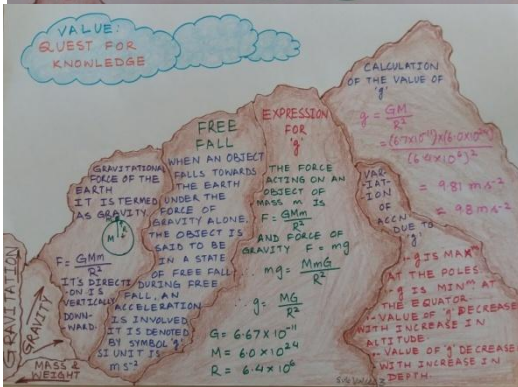 VALUE:
QUEST FOR
KNOWLEDGE
GRAVITATION
GRAVITY
MASS &
WEIGHT
GRAVITATIONAL
FORCE OF THE
EARTH
IT IS TERMED
AS GRAVITY.
M
R
F = GMm/R²
IT'S DIRECTI
-ON IS
VERTICALLY
DOWN-
WARD.
FREE
FALL
WHEN AN OBJECT
FALLS TOWARDS
THE EARTH
UNDER THE
FORCE OF
GRAVITY ALONE.
THE OBJECT IS
SAID TO BE
IN A STATE
OF FREE FALL
DURING FREE
FALL, AN
ACCELERATION
IS INVOLVED
IT IS DENOTED
BY SYMBOL 'g'
SI UNIT IS
ms⁻²
EXPRESSION
FOR
'g'
THE FORCE
ACTING ON AN
OBJECT OF
MASS m IS
F = GMm/R²
AND FORCE OF
GRAVITY F = mg
mg = MmG/R²
∴ g = MG/R²
G = 6.67 X 10⁻¹¹
M = 6.0 X 10²⁴
R = 6.4 X 10⁶
CALCULATION
OF THE VALUE OF
'g'
g = GM/R²
= (6.7X10⁻¹¹)X(6.0X10²⁴)/(6.4X10⁶)²
= 9.81 ms⁻²
= 9.8 ms⁻²
VAR-
IAT-
ION
OF
ACCN
DUE TO
'g'
- g IS MAXᵐ
AT THE POLES
- g IS MINᵐ AT
THE EQUATOR
- VALUE OF 'g' DECREASE
WITH INCREASE IN
ALTITUDE
- VALUE OF 'g' DECREASE
WITH INCREASE IN
DEPTH.